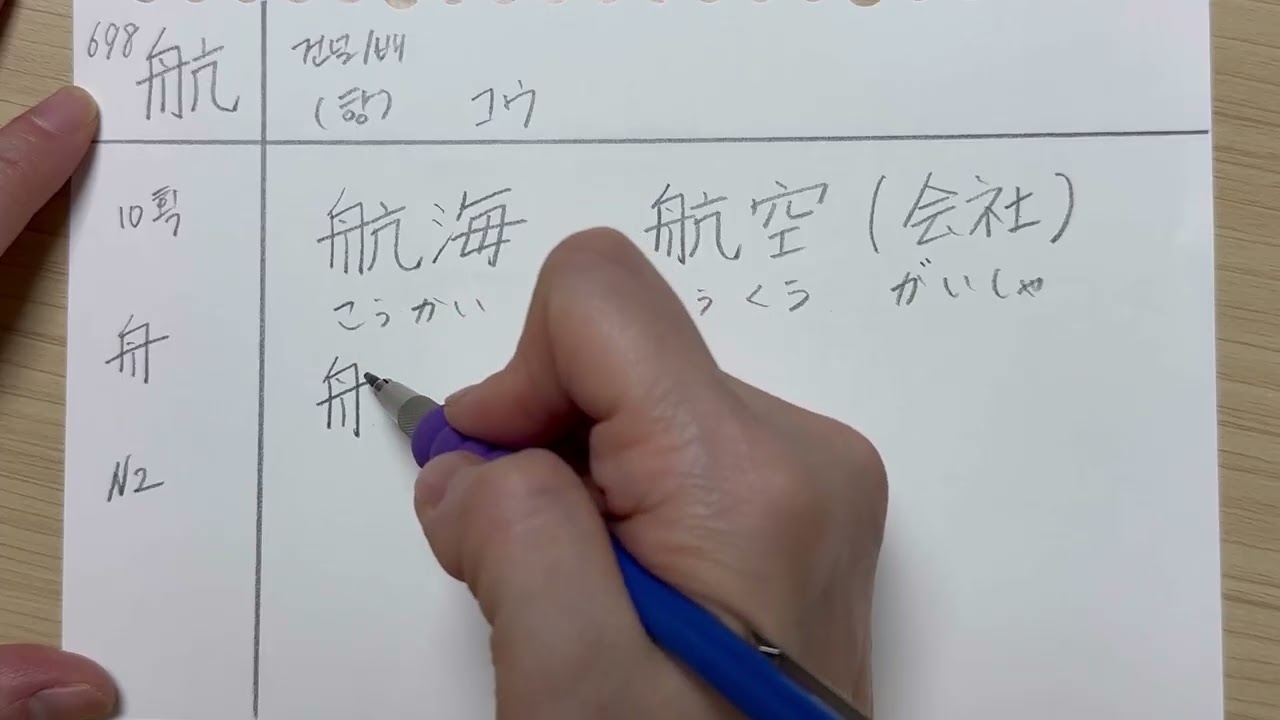 698 航
건널/배
(항) コウ
10획
舟
N2
航海 航空(会社)
こうかい うくう がいしゃ
舟